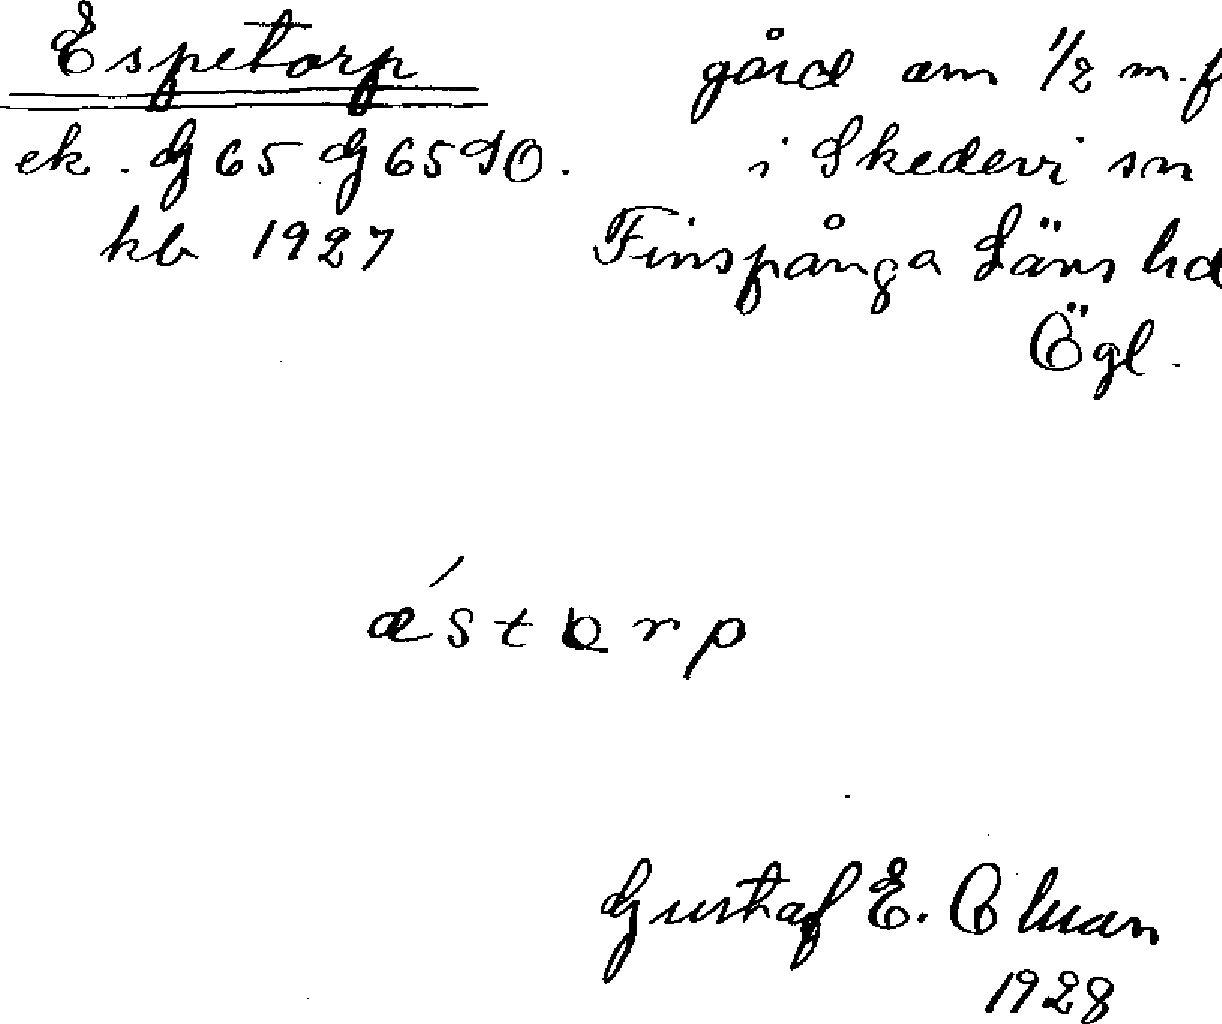 Espetorp
ek. G 65 G 65 SO.
kb 1927
gård om 1/2 m.f
i Skedevi sn
Finspånga Läns hd
Ögl.
æ´storp
Gustaf E.
1928